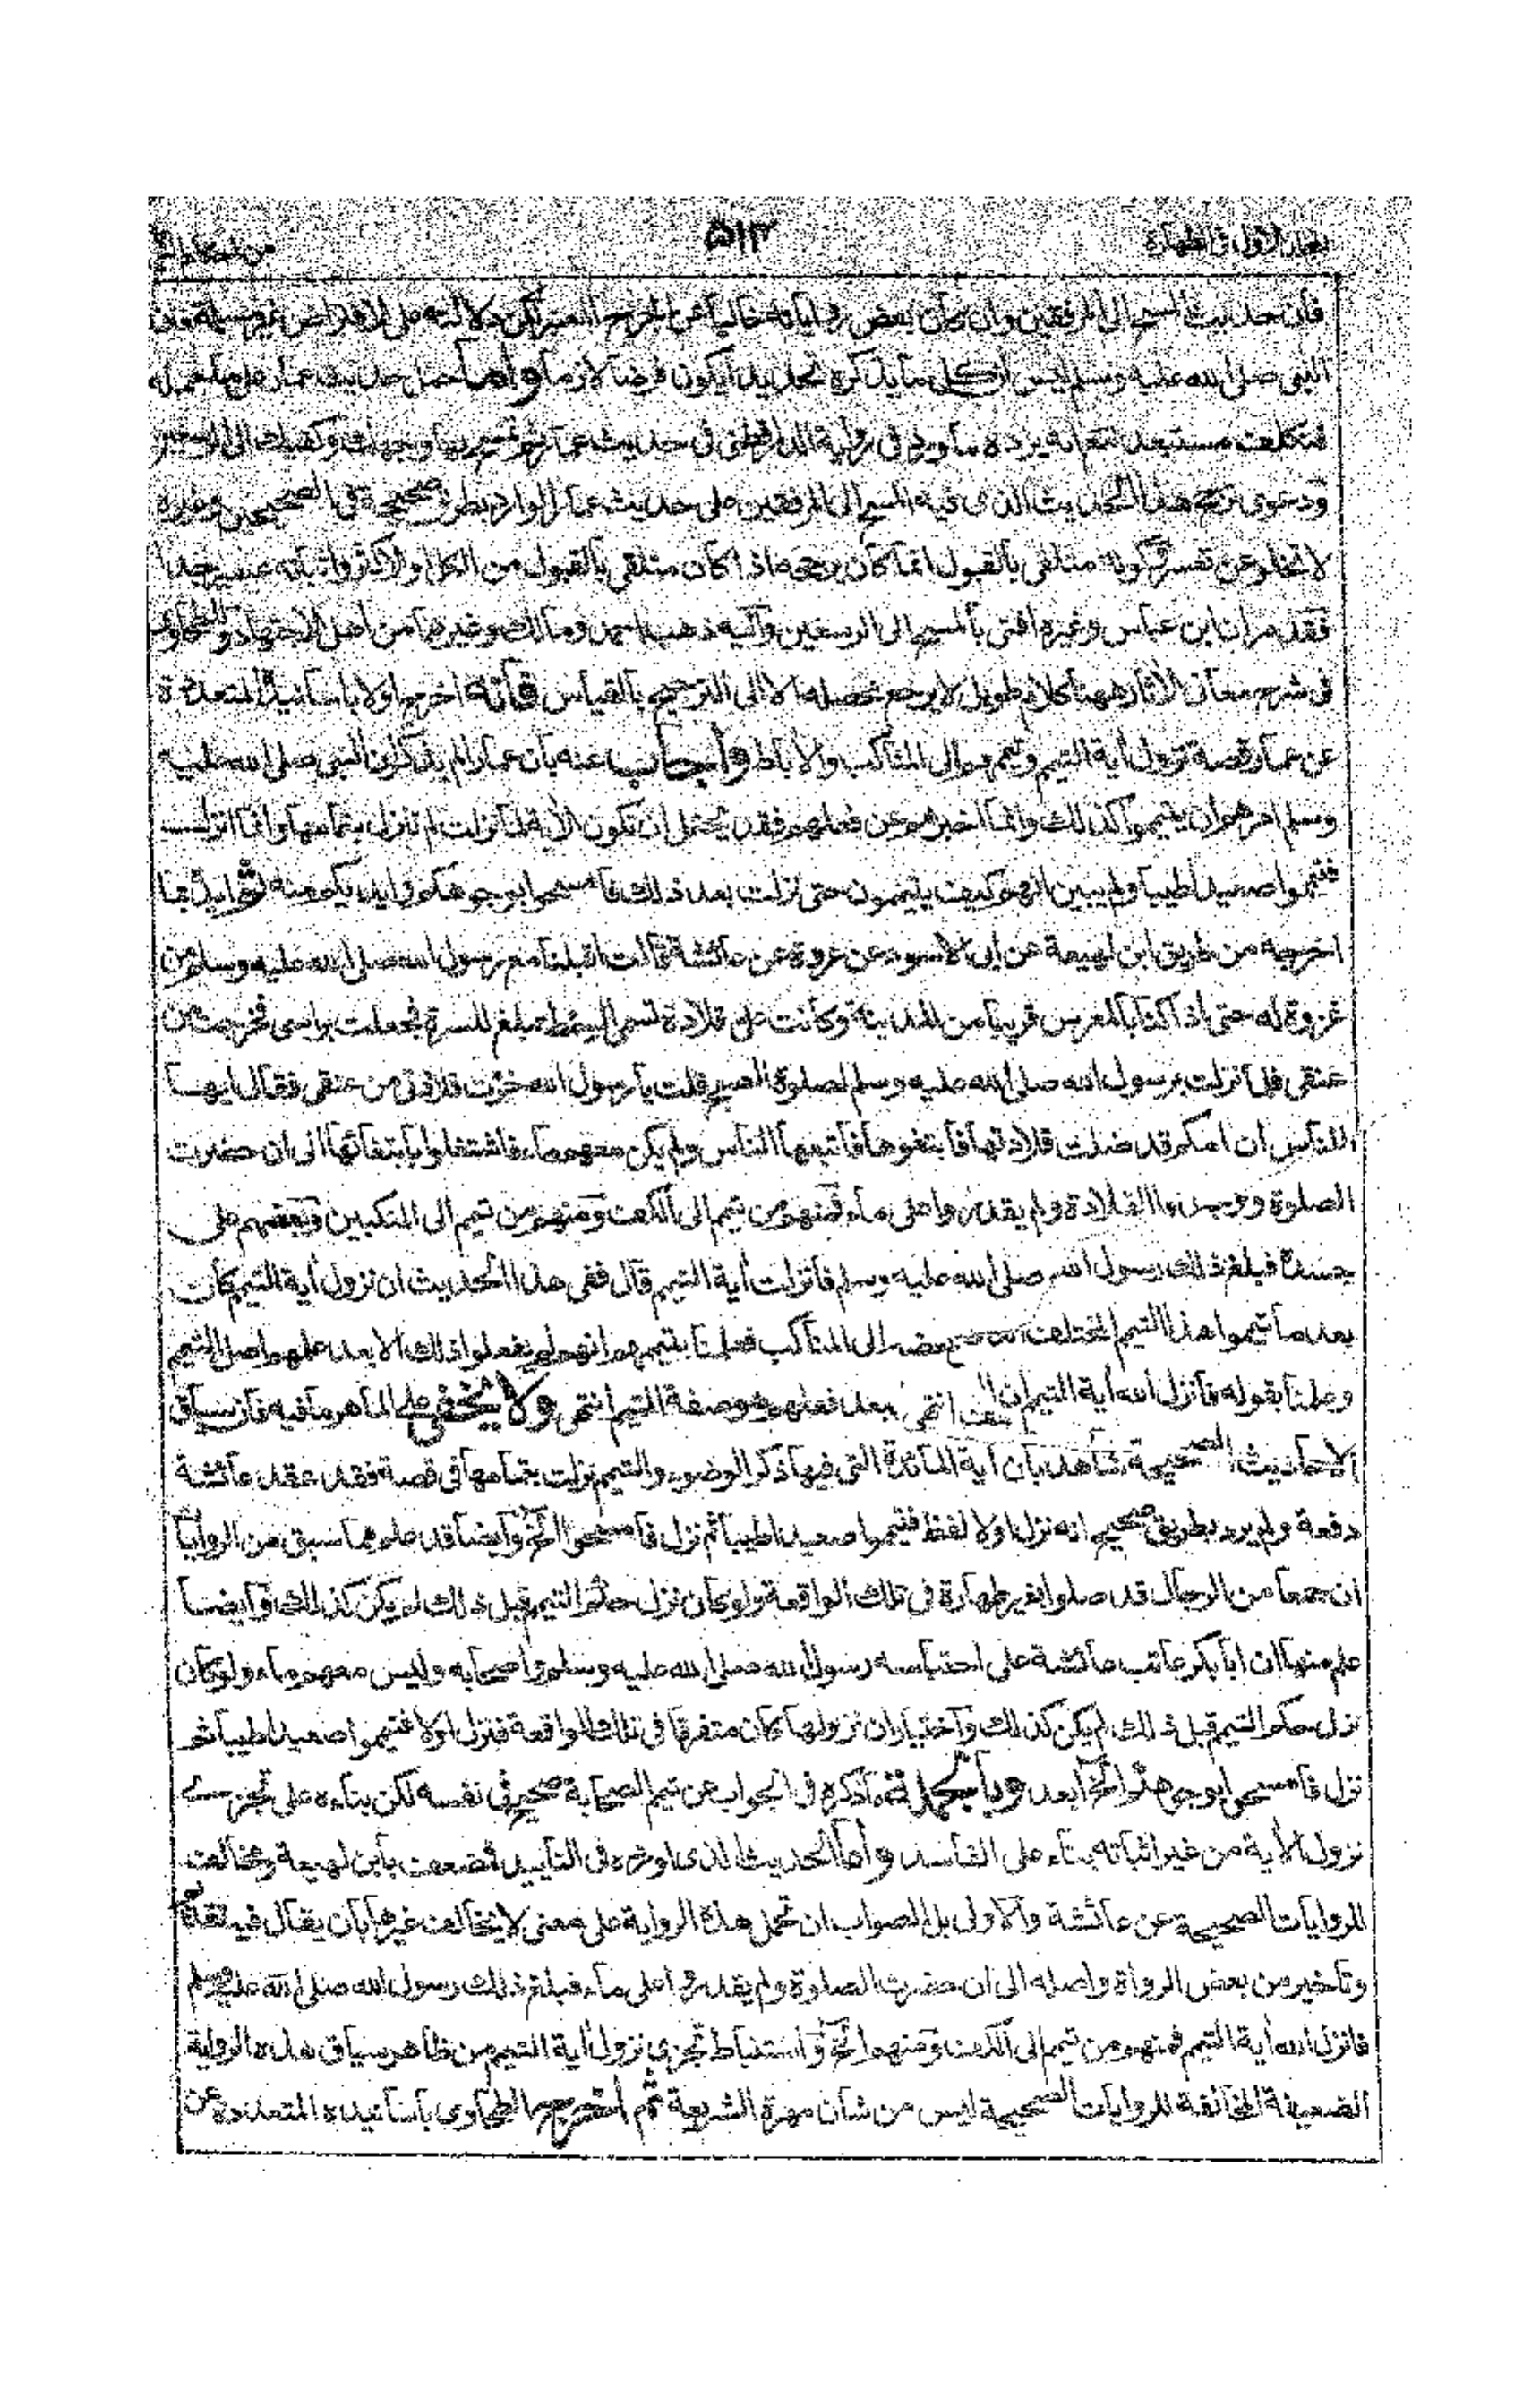 ۵۱۳
فان حديث المسح الى المرفقين وان كان بعض رواياته خاليا عن الجرح المعتبر لكن دلالته على الافتراض غير مسلمة فان
النبي صلى الله عليه وسلم ليس ان كل ما يذكره تحديدا يكون فرضا لازما واما حمل حديث عمار على
فتكلف مستبعد مع انه يرده ما ورد في رواية الدارقطني في حديث عمار ثم تمسح بها وجهك وكفيك الى الرسغين
ودعوى ترجيح هذا الحديث الذي فيه المسح الى المرفقين على حديث عمار الوارد بطرق صحيحة في الصحيحين وغيره
لا تخلو عن تعسر وكونه متلقى بالقبول انما كان يرجحه اذا كان متلقى بالقبول من الكل او الاكثر واثباته عسير جدا
فقد مر ان ابن عباس وغيره افتى بالمسح الى الرسغين واليه ذهب احمد ومالك وغيرهما من اهل الاجتهاد وللطحاوي
في شرح معاني الاثار ههنا كلام طويل لا يرجع محصله الا الى الترجيح بالقياس فانه اخرج اولا باسانيده المتعددة
عن عمار قصة نزول أية التيمم وتيممهم الى المناكب والاباط واجاب عنه بان عمارا لم يذكر ان النبي صلى الله عليه
وسلم امرهم ان يتيمموا كذلك وانما اخبر هو عن فعلهم فقد يحتمل ان تكون الأية لما نزلت لم تنزل بتمامها وانما انزل
فتيمموا صعيدا طيبا ولم يبين لهم كيف يتيممون حتى نزلت بعد ذلك فامسحوا بوجوهكم وايديكم منه ثم ايده بما
اخرجه من طريق ابن لهيعة عن ابي الاسود عن عروة عن عائشة قالت اقبلنا مع رسول الله صلى الله عليه وسلم من
غزوة له حتى اذا كنا بالمعرس قريبا من المدينة وكانت علي قلادة تسمى السمط تبلغ السرة فجعلت براسي فخرجت من
عنقي فلما نزلت برسول الله صلى الله عليه وسلم لصلوة الصبح قلت يا رسول الله خرت قلادتي من عنقي فقال ايها
الناس ان امكم قد ضلت قلادتها فابتغوها فابتغاها الناس ولم يكن معهم ماء فاشتغلوا بابتغائها الى ان حضرت
الصلوة ووجدوا القلادة ولم يقدروا على ماء فمنهم من تيمم الى الكف ومنهم من تيمم الى المنكبين وبعضهم على
جسده فبلغ ذلك رسول الله صلى الله عليه وسلم فانزلت أية التيمم قال ففي هذا الحديث ان نزول أية التيمم كان
بعد ما تيمموا هذا التيمم المختلف الى المناكب فعلمنا بتيممهم انهم لم يفعلوا ذلك الا بعد علمهم اصل التيمم
وعلمنا بقوله فانزل الله أية التيمم ان بعد فعلهم هو صفة التيمم انتهى ولا يخفى على الماهر ما فيه فان سياق
الاحاديث الصحيحة شاهد بان أية المائدة التي فيها ذكر الوضوء والتيمم نزلت بتمامها في قصة فقد عقد عائشة
دفعة ولم يرد بطريق صحيح انه نزل اولا لفظ فتيمموا صعيدا طيبا ثم نزل فامسحوا الخ وايضا قد علم مما سبق من الروايات
ان جمعا من الرجال قد صلوا بغير طهارة في تلك الواقعة ولو كان نزل حكم التيمم قبل ذلك لم يكن كذلك وايضا
علم منها ان ابا بكر عاتب عائشة على احتباسه رسول الله صلى الله عليه وسلم واصحابه وليس معهم ماء ولو كان
نزل حكم التيمم قبل ذلك لم يكن كذلك واختيار ان نزولها كان متفرقا في تلك الواقعة فنزل اولا فتيمموا صعيدا طيبا ثم
نزل فامسحوا بوجوهكم الخ ابعد وبالجملة فما ذكره في الجواب عن تيمم الصحابة صحيح في نفسه لكن بناءه على تجزي
نزول الأية من غير اثباته بناء على الفاسد واما الحديث الذي اورده في التأييد فضعف بابن لهيعة ومخالف
للروايات الصحيحة عن عائشة والاولى بل الصواب ان تحمل هذه الرواية على معنى لا يخالف غيرها بان يقال فيه تقديم
وتاخير من بعض الرواة واصله الى ان حضرت الصلوة ولم يقدروا على ماء فبلغ ذلك رسول الله صلى الله عليه وسلم
فانزل الله أية التيمم فمنهم من تيمم الى الكف ومنهم الخ واستنباط تجزي نزول أية التيمم من ظاهر سياق هذه الرواية
الضعيفة المخالفة للروايات الصحيحة ليس من شان مهرة الشريعة ثم اخرج الطحاوي باسانيده المتعددة عن